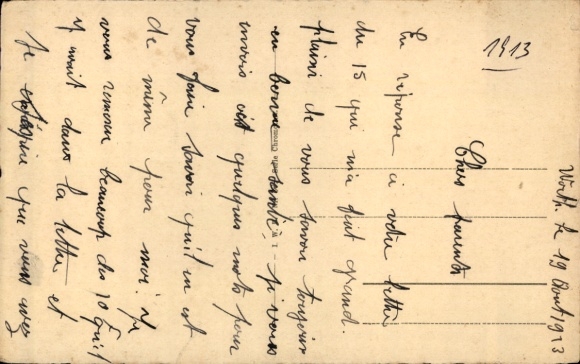 1913
Worth le 19 Août 1913
Chers parents
En réponse a votre lettre
du 15 qui m'a fait grand
plaisir de vous savoir toujours
en bonne santé, je vous
envois ces quelques mots pour
vous faire savoir qu'il en est
de même pour moi. Je
vous remercie beaucoup des 10f qu'il
y avait dans la lettre et
Je espère que vous avez